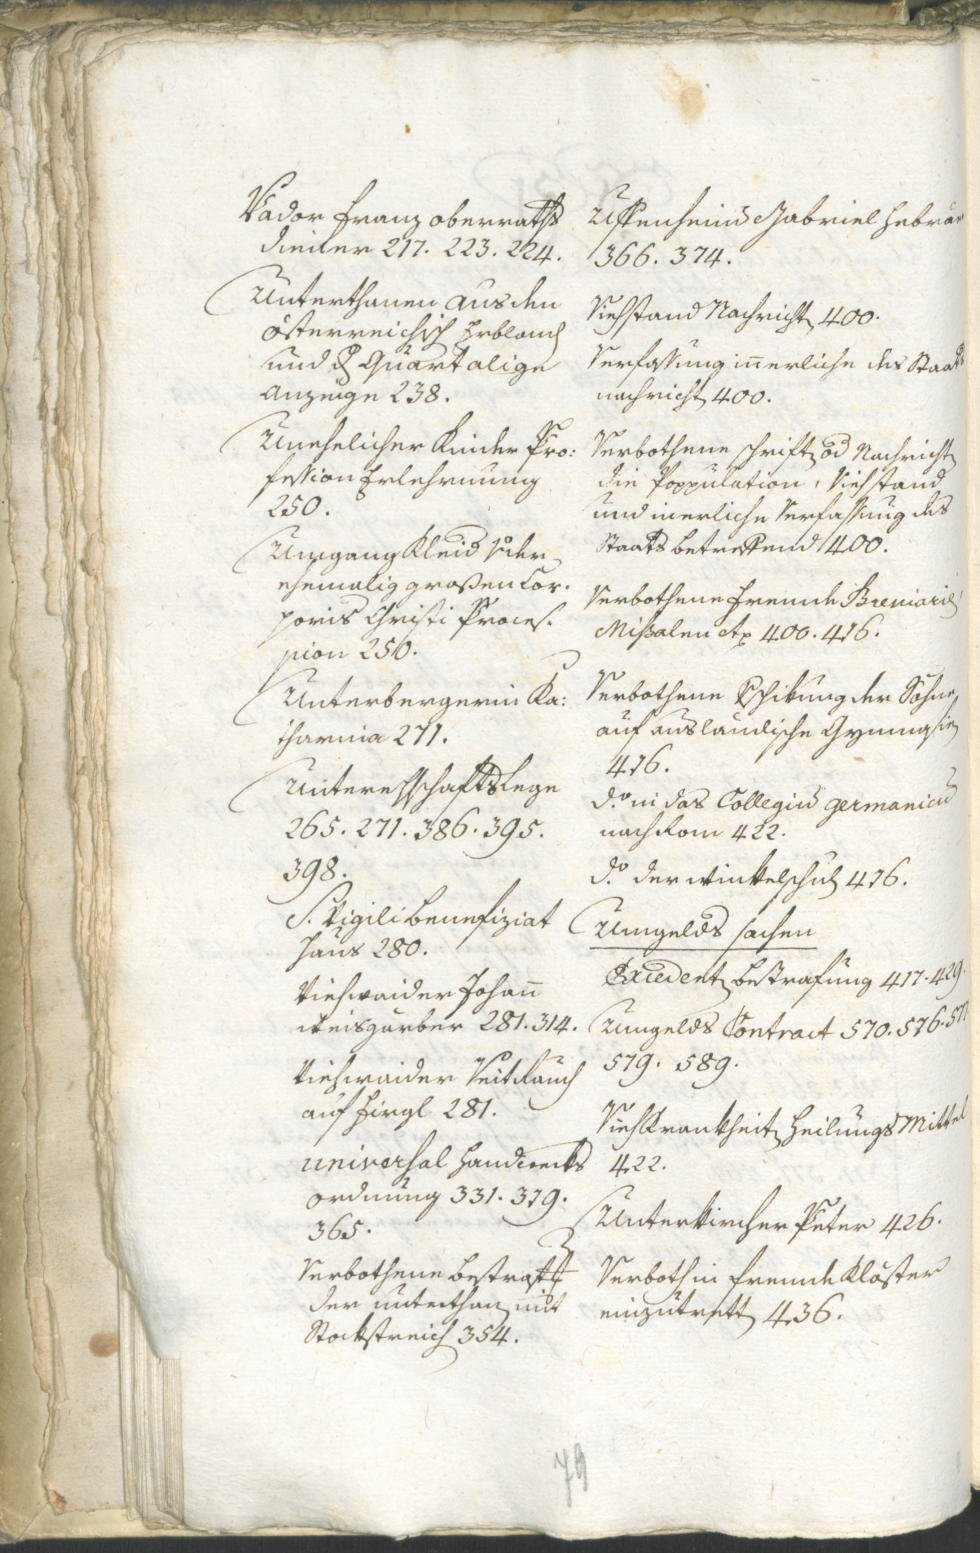 Vador Franz oberraths
diener 217. 223. 224.
Unterthanen aus den
österreichisch Erbland
und Quartalige
Anzeige 238.
Unehelicher Kinder Pro:
fession Erlehrnung
250.
Umgang Kleid der
ehemalig großen Cor:
poris Christi Proces:
sion 250.
Unterbergerin Ka:
tharina 271.
265. 271. 386. 395.
398.
S. Vigili Benefiziat
Haus 280.
Viehwaider Johann
Weisgärber 281. 314.
Viehwaider Veit Rauch
auf Hirgl 281.
universal Handwerks
ordnung 331. 319.
365.
Verbothene Bestraff
der unterthan mit
Stockstreich 354.
Uffenheim Gabriel Hebräer
366. 374.
Viehstand Nachricht 400.
Verfassung innerliche des Staats
nachricht 400.
Verbothene schrift od Nachricht
die Poppulation, Viehstand
und inerliche Verfassung des
Staats betreffend 400.
Verbothene fremde Breviarien
Missalen etc 400. 416.
Verbothene Schikung der Söhne
auf ausländische Gymnasien
416.
do in das Collegium germanicum
nach Rom 422.
do der winkelschul 416.
Umgelds sachen
Excedent bestrafung 417. 429.
Umgelds Contract 570. 576. 577
579. 589.
Viehkrankheit Heilungs Mittel
422.
Unterkircher Peter 426.
Verboth in fremde Klöster
einzutrett 436.
79